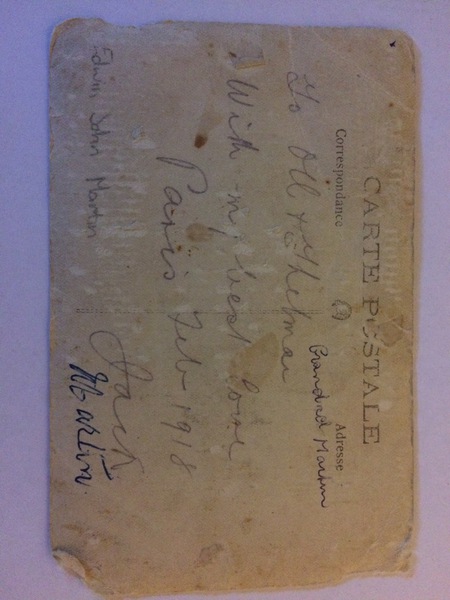 CARTE POSTALE
Correspondance
Adresse :
Grandad Martin
To
With my best love
Paris Feb 1918
Jack
Martin.
Edwin John Martin